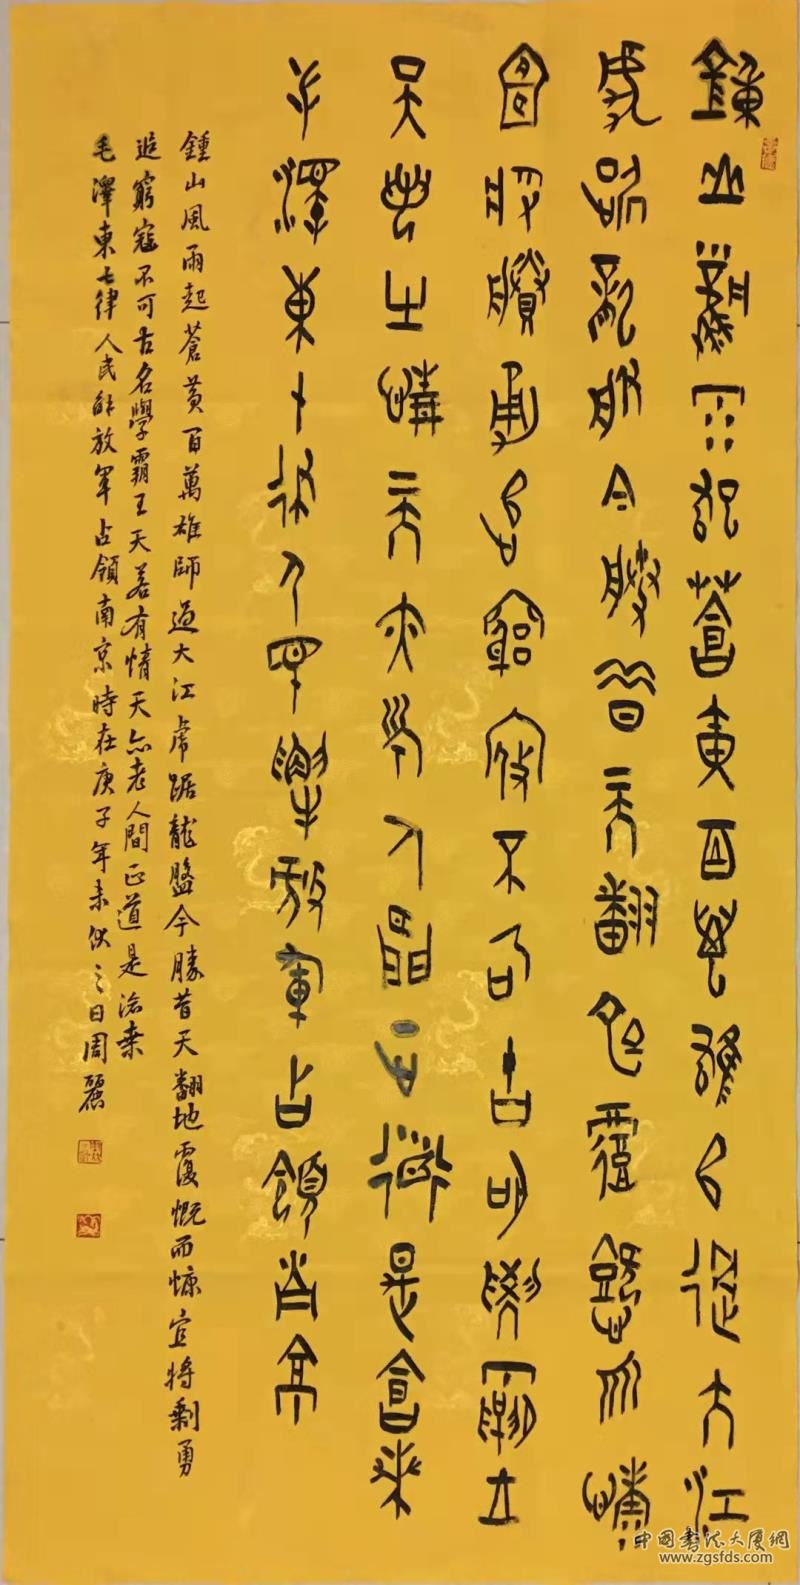 鍾山風雨起蒼黃百萬雄師過大江
虎踞龍盤今勝昔天翻地覆慨而慷
宜將剩勇追窮寇不可古名學霸王
天若有情天亦老人間正道是倉桑
毛澤東七律人民解放軍占領南京
鍾山風雨起蒼黃百萬雄師過大江虎踞龍盤今勝昔天翻地覆慨而慷宜將剩勇
追窮寇不可古名學霸王天若有情天亦老人間正道是滄桑
毛澤東七律人民解放軍占領南京時在庚子年未秋之日周麗
中國書法大廈網
www.zgsfds.com